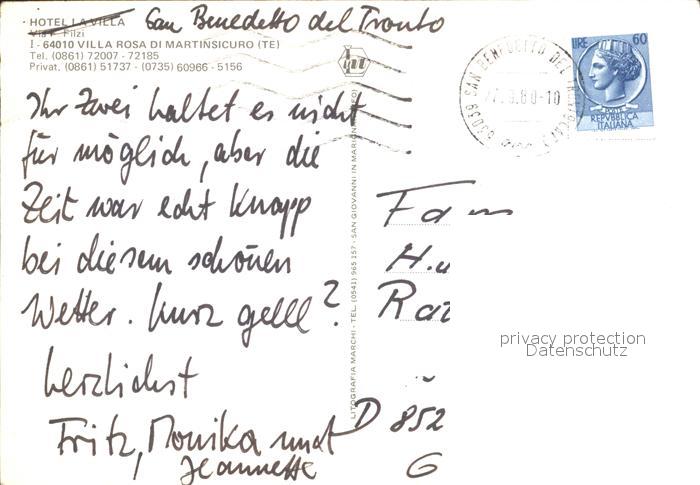 HOTEL LA VILLA San Benedetto del Tronto
Via F. Filzi
I - 64010 VILLA ROSA DI MARTINSICURO (TE)
Tel. (0861) 72007 - 72185
Privat. (0861) 51737 - (0735) 60966 - 5156
LIRE 60
POSTE
REPVBBLICA
ITALIANA
63039 SAN BENEDETTO DEL TRONTO
Ihr Zwei haltet es nicht
für möglich, aber die
Zeit war echt Knapp
bei diesem schönen
Wetter. Kurz gelll?
herzlichst
Fritz, Monika und
Jeannette
LITOGRAFIA MARCHI - TEL. (0541) 965 157 - SAN GIOVANNI IN MARIGNANO (FO)
Fam
H.u
Rat
D 852
G
privacy protection
Datenschutz